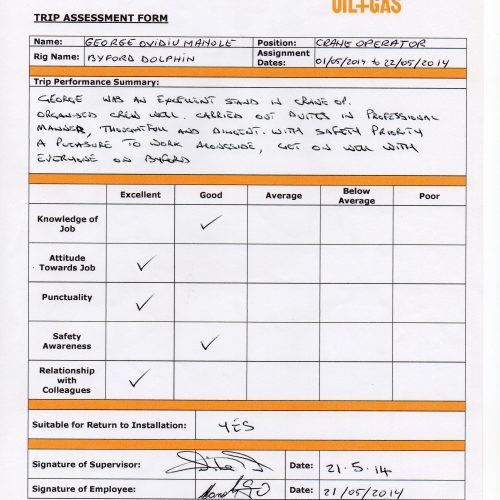 OIL+GAS
TRIP ASSESSMENT FORM
Name: GEORGE OVIDIU MANOLE Position: CRANE OPERATOR
Rig Name: BYFORD DOLPHIN Assignment Dates: 01/05/2014 to 22/05/2014
Trip Performance Summary:
GEORGE WAS AN EXCELLENT STAND IN CRANE OP.
ORGANISED CREW WELL. CARRIED OUT DUTIES IN PROFESSIONAL
MANNER, THOUGHTFUL AND DILIGENT. WITH SAFETY PRIORITY
A PLEASURE TO WORK ALONGSIDE, GET ON WELL WITH
EVERYONE ON BYFORD
Excellent Good Average Below Average Poor
Knowledge of Job ✓
Attitude Towards Job ✓
Punctuality ✓
Safety Awareness ✓
Relationship with Colleagues ✓
Suitable for Return to Installation: YES
Signature of Supervisor: Date: 21.5.14
Signature of Employee: Date: 21/05/2014